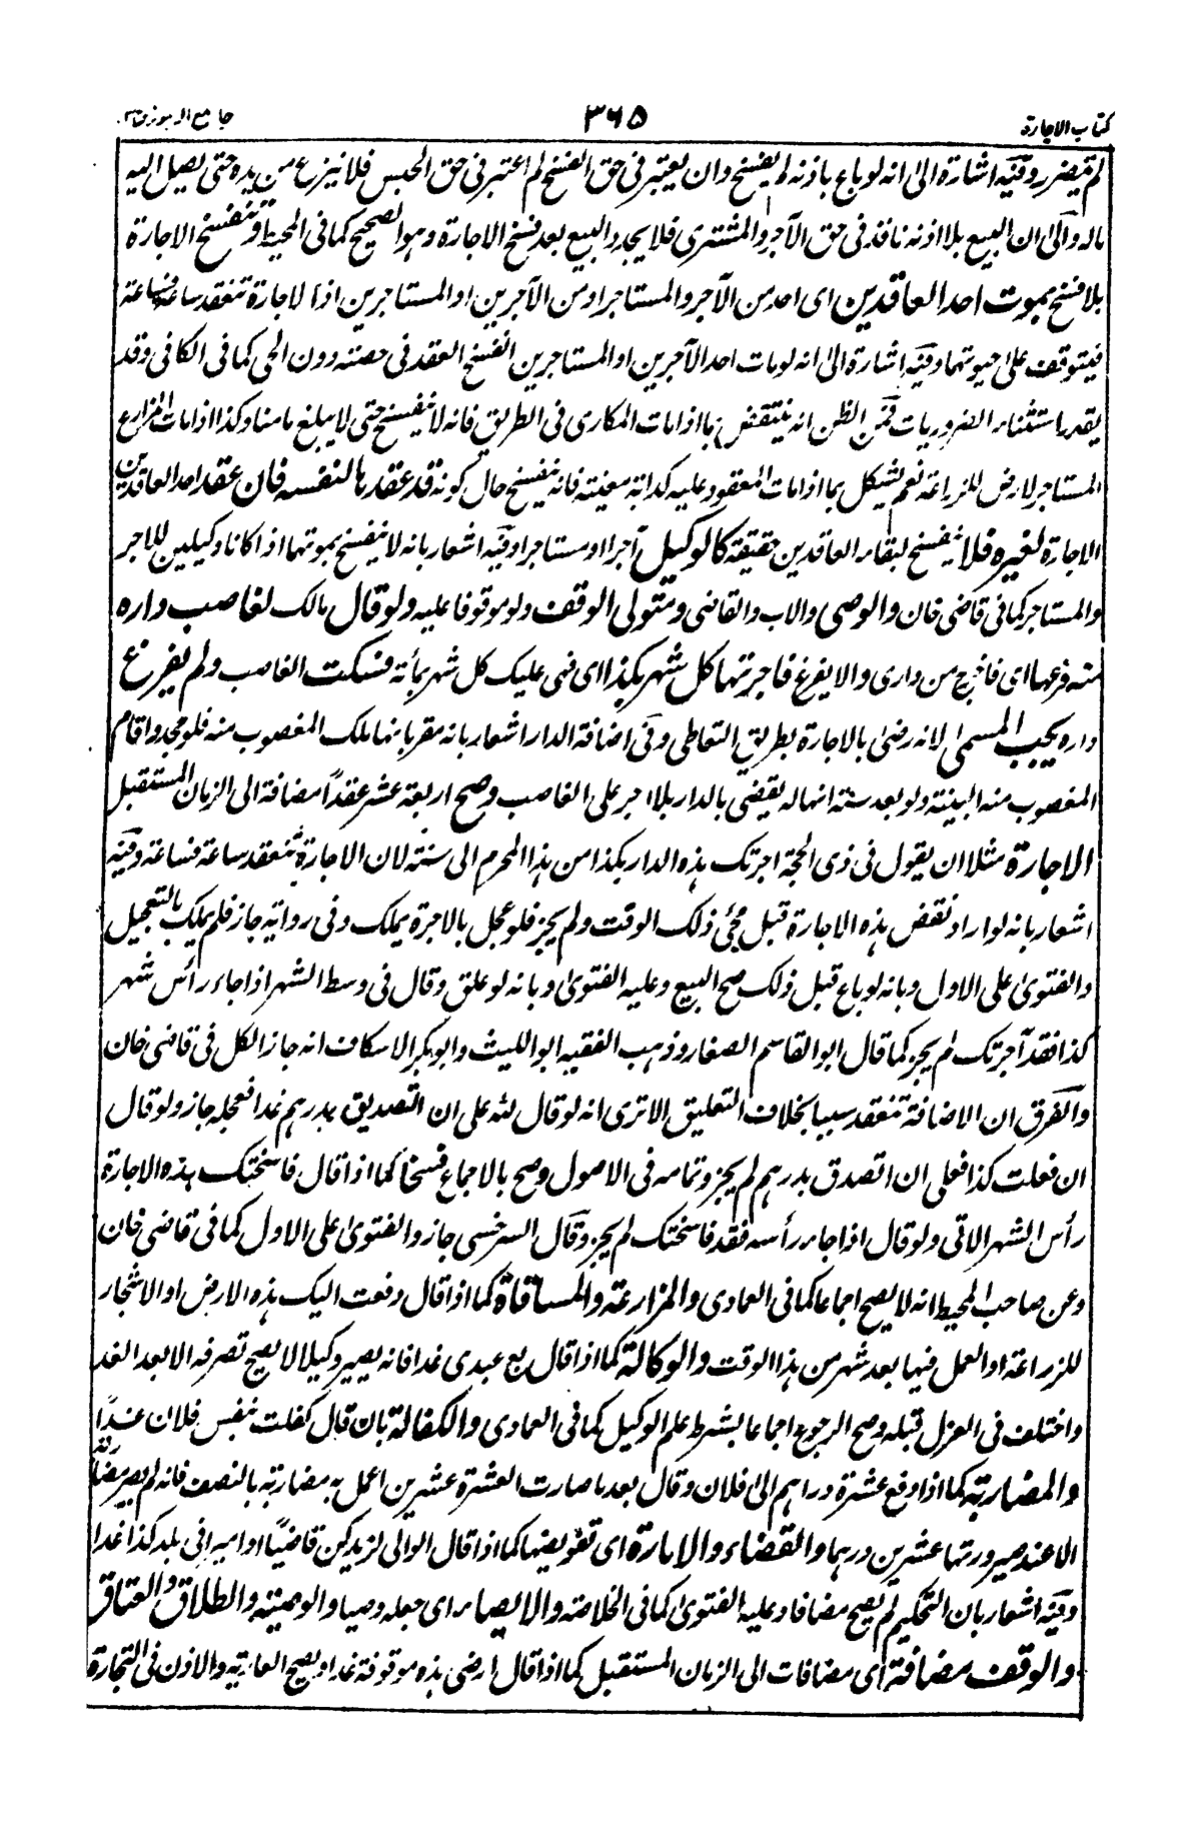 كتاب الاجارة
٣٦٥
جامع الرموز ج٣
لم يتضرر وفيه اشارة الى انه لو باع باذنه لم ينفسخ وان يعتبر في حق الفسخ لم اعتبر في حق الحبس فلا ينزع من يده حتى يصل اليه
ماله والى ان البيع بلا اذنه نافذ في حق الآجر والمشترى فلا يجدد البيع بعد فسخ الاجارة وهو الصحيح كما في المحيط وتنفسخ الاجارة
بلا فسخ بموت احد العاقدين اى احد من الآجر والمستاجر او من الآجرين او المستاجرين اذا لاجارة تنعقد ساعة فساعة
فيتوقف على حيوتهما وفيه اشارة الى انه لو مات احد الآجرين او المستاجرين انفسخ العقد في حصته دون الحى كما في الكافى وقد
يقدر استثناء الضروريات فمن الظن انه ينتقض بما اذا مات المكارى فى الطريق فانه لا ينفسخ حتى لا يبلغ مامنا وكذا اذا مات المزارع
المستاجر لارض للزراعة نعم يشكل بما اذا مات المعقود عليه كدابة معينة فانه ينفسخ حال كونه قد عقدها لنفسه فان عقد احد العاقدين
الاجارة لغيره فلا تنفسخ لبقاء العاقدين حقيقة كالوكيل آجرا او مستاجرا وفيه اشعار بانه لا ينفسخ بموتهما اذا كانا وكيلين للاجر
والمستاجر كما في قاضى خان والوصى والاب والقاضى ومتولى الوقف ولو موقوفا عليه ولو قال مالك لغاصب داره
منه فرغها اى فاخرج من دارى والا يفرغ فاجرتها كل شهر بكذا اى فهى عليك كل شهر بمأة فسكت الغاصب ولم يفرغ
داره يجب المسمى لانه رضى بالاجارة بطريق التعاطى وفى اضافة الدار اشعار بانه مقر بانها ملك المغصوب منه فلو جحد واقام
المغصوب منه البينة ولو بعد سنة انها له يقضى بالدار بلا اجر على الغاصب وصح اربعة عشر عقداً مضافة الى الزمان المستقبل
الاجارة مثلا ان يقول فى ذى الحجة اجرتك هذه الدار بكذا من هذا المحرم الى سنة لان الاجارة تنعقد ساعة فساعة وفيه
اشعار بانه لو اراد نقض هذه الاجارة قبل مجئ ذلك الوقت ولم يجز فلو عجل بالاجرة يملك وفى رواية جاز فلم يملك بالتعجيل
والفتوى على الاول وبانه لو باع قبل ذلك صح البيع وعليه الفتوى وبانه لو علق وقال فى وسط الشهر اذا جاء رأس شهر
كذا فقد آجرتك لم يجز كما قال ابو القاسم الصفار وذهب الفقيه ابو الليث وابو بكر الاسكاف انه جاز الكل فى قاضى خان
والفرق ان الاضافة تنعقد سببا بخلاف التعليق الا ترى انه لو قال لله على ان اتصدق بدرهم غدا فعجله جاز ولو قال
ان فعلت كذا فعلى ان اتصدق بدرهم لم يجز وتمامه فى الاصول وصح بالاجماع فسخها كما اذا قال فاسختك هذه الاجارة
رأس الشهر الآتى ولو قال اذا جاء رأسه فقد فاسختك لم يجز وقال السرخسى جاز والفتوى على الاول كما فى قاضى خان
وعن صاحب المحيط انه لا يصح اجماعا كما فى العمادى والمزارعة والمساقاة كما اذا قال دفعت اليك هذه الارض او الاشجار
للزراعة او العمل فيها بعد شهر من هذا الوقت والوكالة كما اذا قال بع عبدى غدا فانه يصير وكيلا لا يصح تصرفه الا بعد الغد
واختلف فى العزل قبله وصح الرجوع اجماعا بشرط علم الوكيل كما فى العمادى والكفالة بان قال كفلت بنفس فلان غداً
والمضاربة كما اذا دفع عشرة دراهم الى فلان وقال بعد ما صارت العشرة عشرين اعمل به مضاربة بالنصف فانه لم يصر مضاربة
الا عند صيرورتها عشرين درهما والقضاء والامارة اى تفويضهما كما اذا قال الوالى لزيد كن قاضيًا او اميرا فى بلد كذا غدا
وفيه اشعار بان التحكيم لم يصح مضافا وعليه الفتوى كما فى الخلاصة والايصاء اى جعله وصيا والوصية والطلاق والعتاق
والوقف مضافة اى مضافات الى الزمان المستقبل كما اذا قال ارضى هذه موقوفة غدا ويصح العارية والاذن فى التجارة